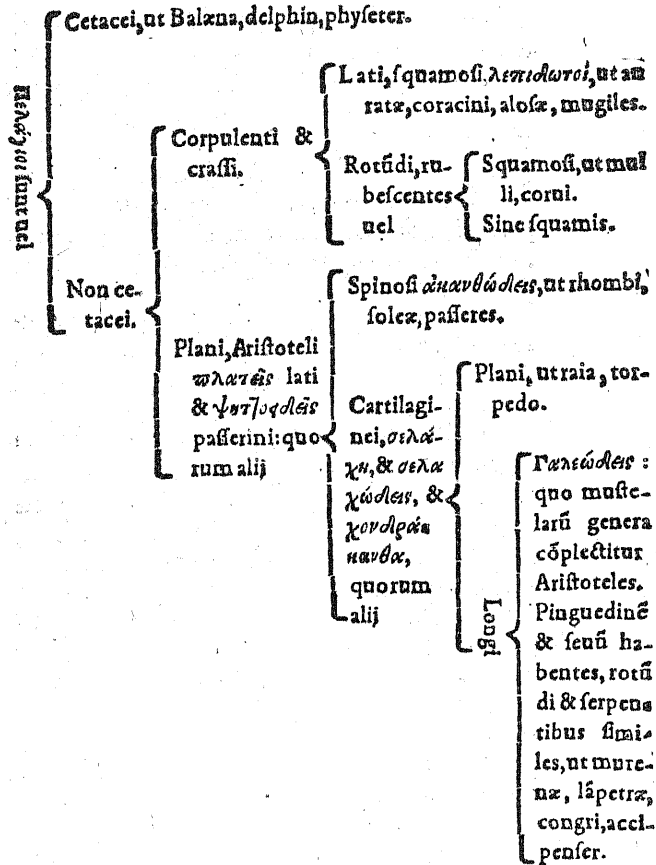 Πελάγιοι ſunt uel
Cetacei, ut Balæna, delphin, phyſeter.
Non ce-
tacei.
Corpulenti &
craſſi.
Lati, ſquamoſi, λεπιδωτοί, ut au
ratæ, coracini, aloſæ, mugiles.
Rotūdi, ru-
beſcentes
uel
Squamoſi, ut mul
li, corui.
Sine ſquamis.
Plani, Ariſtoteli
πλατεῖς lati
& ψηττοειδεῖς
paſſerini: quo
rum alij
Spinoſi ἀκανθώδεις, ut rhombi,
ſoleæ, paſſeres.
Cartilagi-
nei, σελά-
χη, & σελα
χώδεις, &
χονδράκ
κανθα,
quorum
alij
Plani, ut raia, tor-
pedo.
Longi
Γαλεώδεις :
quo muſte-
larū genera
cōplectitur
Ariſtoteles.
Pinguedinē
& ſeuū ha-
bentes, rotū
di & ſerpen-
tibus ſimi-
les, ut mure-
næ, lāpetræ,
congri, acci-
penſer.